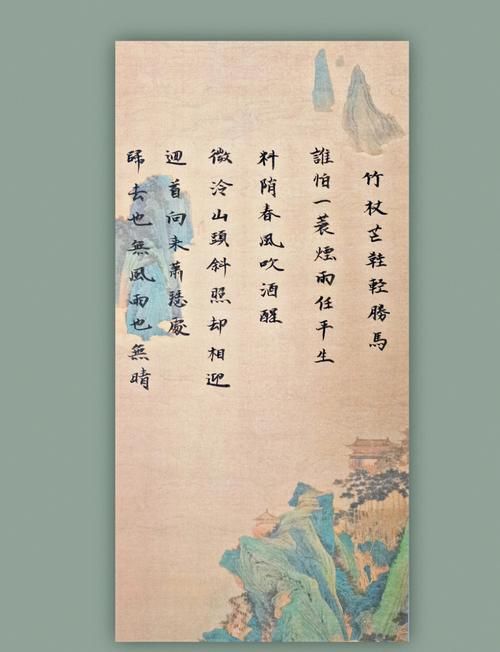 竹杖芒鞋輕勝馬
誰怕一蓑煙雨任平生
料陗春風吹酒醒
微泠山頭斜照却相迎
迴首向来蕭瑟處
歸去也無風雨也無晴